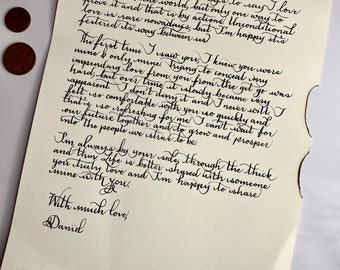 to say I love
prove it and that is by actions. Unconditional
love is rare nowadays, but I'm happy it's
festered its way between us
The first time I saw you, I knew you were
mine & only mine. Trying to conceal my
impending love from you from the get go was
hard, but over time it slowly became very
apparent I don't deny it and I never will I
felt so comfortable with you so quickly and
that is so refreshing for me I can't wait for
our future together and to grow and prosper
into the people we strive to be
I'm always by your side, through the thick
and thin Life is better shared with someone
you truly love and I'm happy to share
mine with you.
With much love,
Daniel